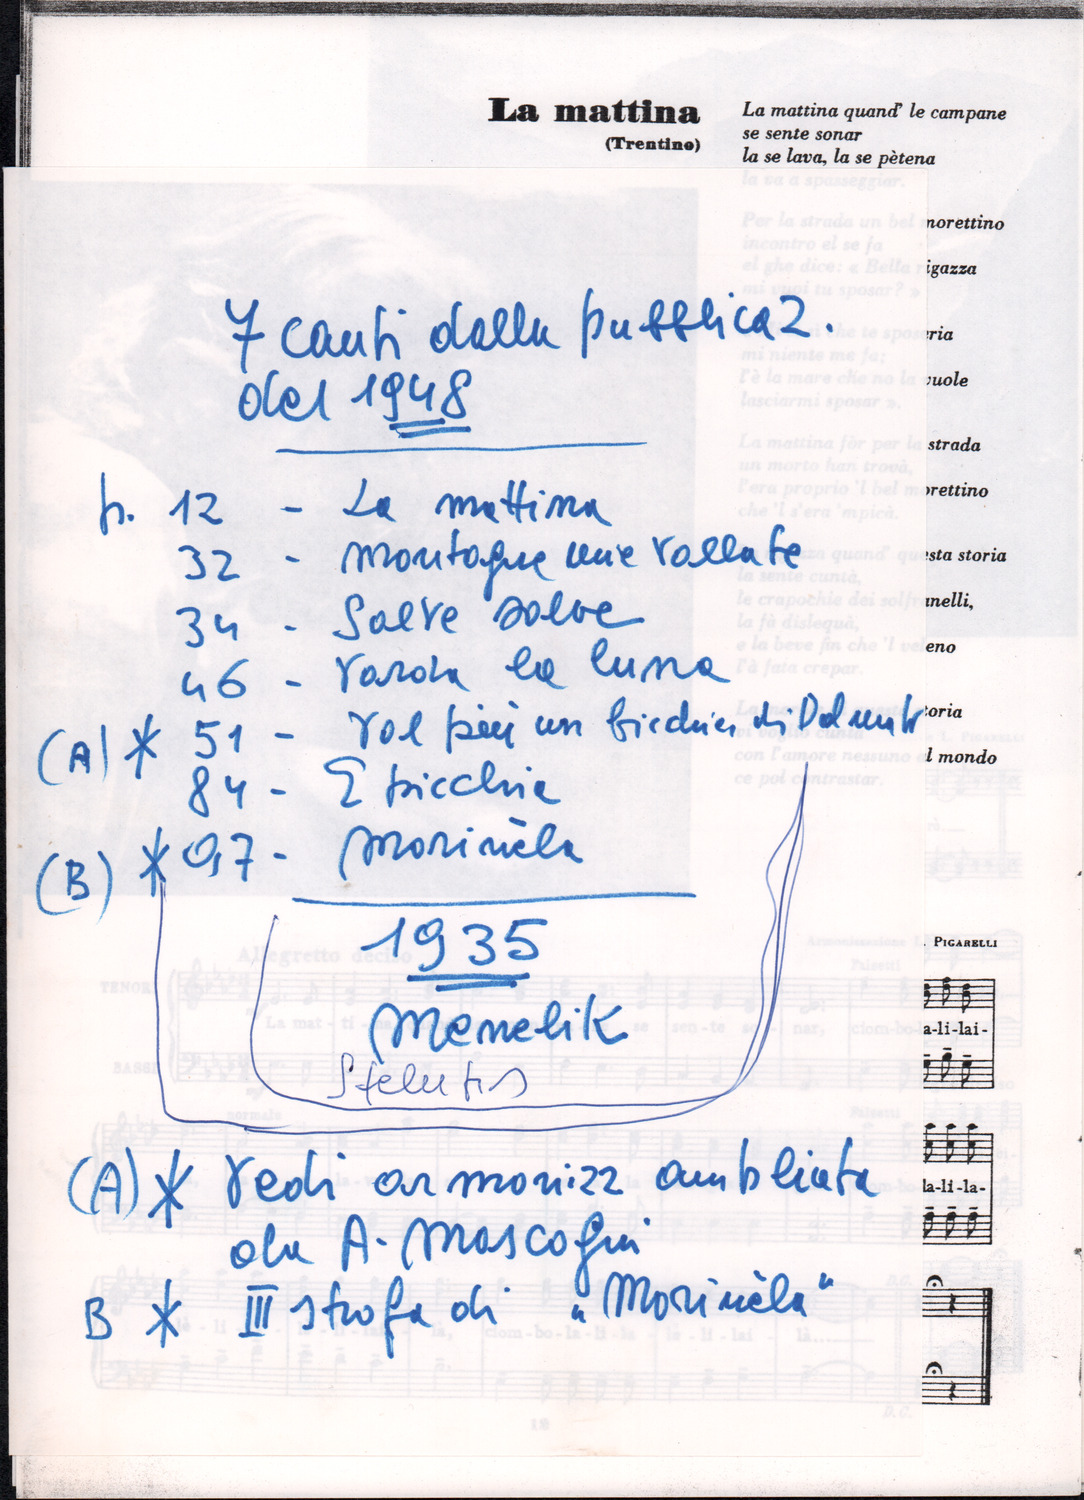 La mattina
(Trentino)
La mattina quand' le campane
se sente sonar
la se lava, la se pètena
la va a spasseggiar.
Per la strada un bel morettino
incontro el se fa
el ghe dice: « Bella ragazza
mi vuoi tu sposar? »
che te spos eria
mi niente me fa;
l'è la mare che no la vuole
lasciarmi sposar ».
La mattina fòr per la strada
un morto han trovà,
l'era proprio 'l bel morettino
che 'l s'era 'mpicà.
La ragazza quand' questa storia
la sente cuntà,
le crapochie dei solfranelli,
la fà dislequà,
e la beve fin che 'l veleno
l'à fata crepar.
toria
vi voglio cuntà
con l'amore nessuno al mondo
ce pol contrastar.
7 canti dalla pubblicaz.
del 1948
p. 12 - La mattina
32 - Montagne mie vallate
34 - Salve salve
46 - Varda la luna
(A) * 51 - Vol più un bicchier di Dalmato
84 - E picchia
(B) * 97 - Morinèla
1935
Menelik
Stelutis
(A) * Vedi armonizz ampliata
da A. Mascagni
B * III strofa di "Morinèla"
Allegretto deciso
Armonizzazione L. PIGARELLI
TENORI
Falsetti
La mat - ti - na se sen - te so - nar, ciom-bo-la-li-lai-
BASSI
normale
Falsetti
la-li-la-
D.C.
ciom-bo-la-li-la - le-li-lai - là
D.C.
12